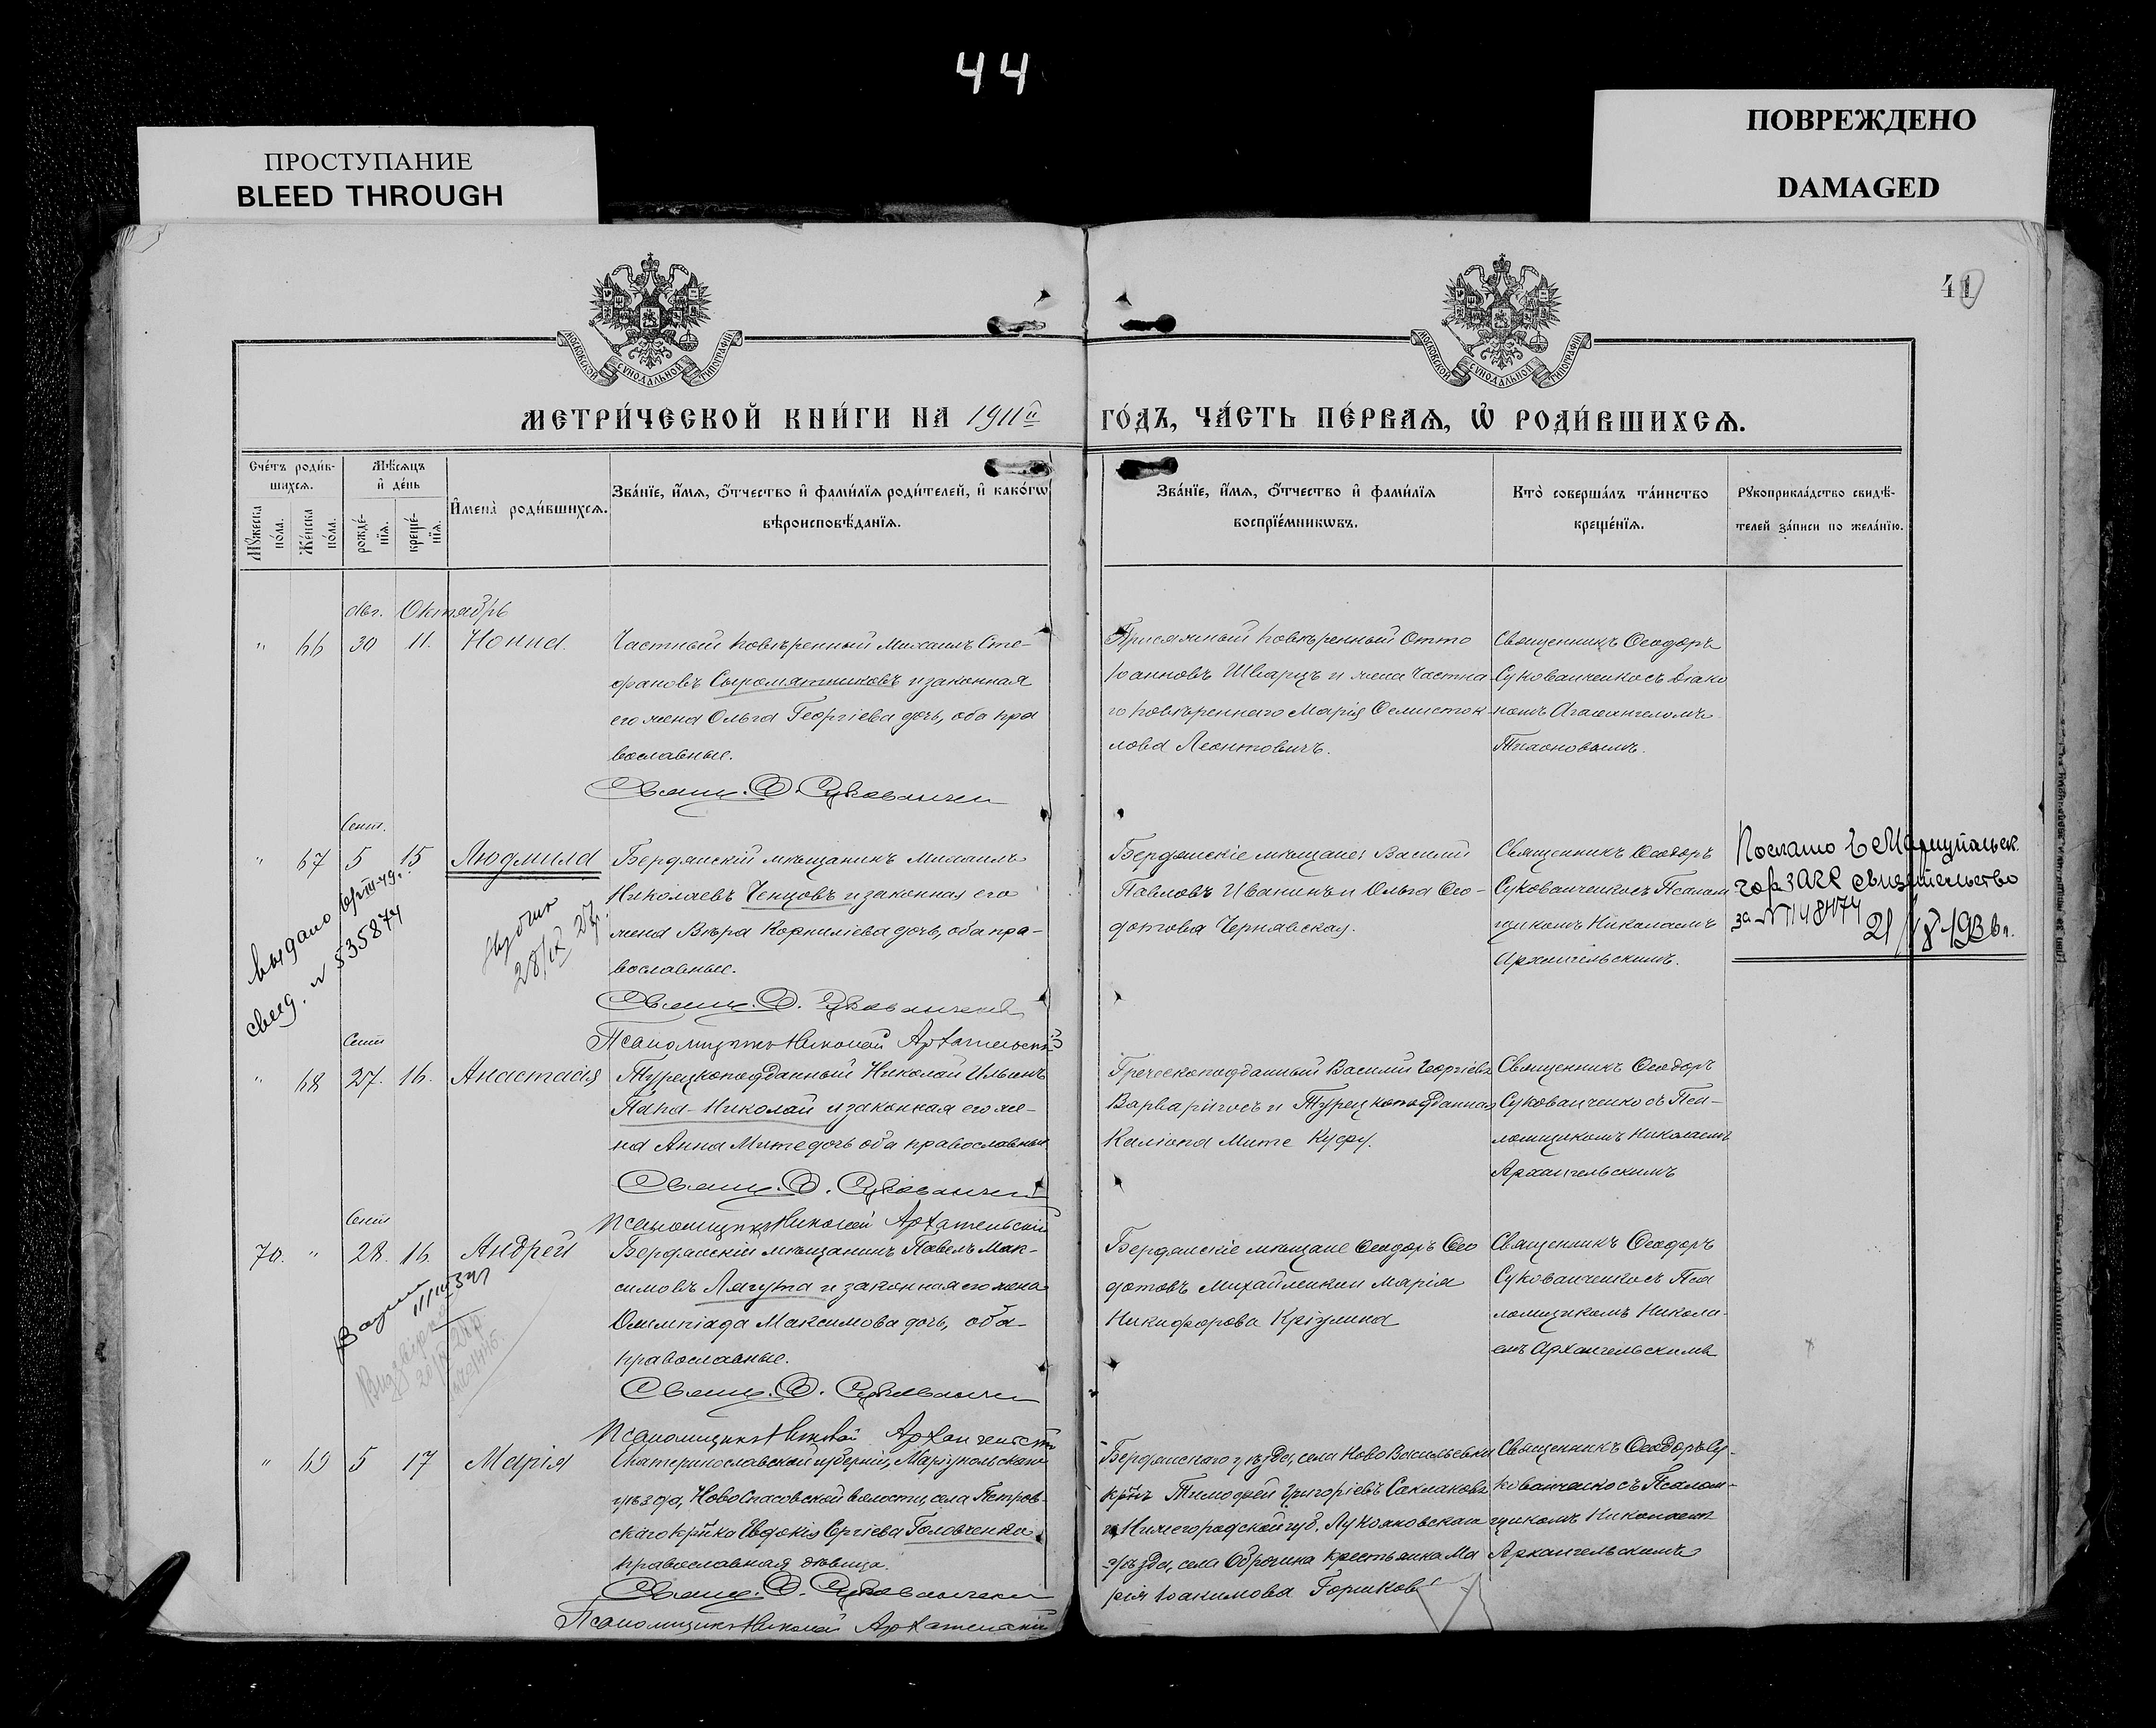 44
ПРОСТУПАНИЕ
BLEED THROUGH
ПОВРЕЖДЕНО
DAMAGED
41
МОСКОВСКОЙ СѴНОДАЛЬНОЙ ТИПОГРАФІИ
МОСКОВСКОЙ СѴНОДАЛЬНОЙ ТИПОГРАФІИ
МЕТРИ́ЧЕСКОЙ КНИ́ГИ НА 1911й ГО́ДЪ, ЧА́СТЬ ПЕ́РВАѦ, Ѡ҆ РОДИ́ВШИХСѦ.
Сче́тъ роди́в-
шихсѧ.
Мꙋ́жеска по́ла.
Же́нска по́ла.
Мѣ́сѧцъ
и҆ де́нь
рожде́-
нїѧ.
креще́-
нїѧ.
И҆мена̀ роди́вшихсѧ.
Зва́нїе, и҆́мѧ, ѻ҆́тчество и҆ фами́лїѧ роди́телей, и҆ како́гѡ
вѣроисповѣ́данїѧ.
Зва́нїе, и҆́мѧ, ѻ҆́тчество и҆ фами́лїѧ
воспрїе́мникѡвъ.
Кто̀ соверша́лъ та́инство
креще́нїѧ.
Рꙋкоприкла́дство свидѣ́-
телей за́писи по жела́нїю.
авг. Октябрь
" 66 30 11. Нонна.
Частный повѣренный Михаилъ Сте-
фановъ Сыромятниковъ и законная
его жена Ольга Георгіева дочь, оба пра
вославные.
Свящ. Ѳ. Сукованченко
Присяжный повѣренный Отто
Іоанновъ Шварцъ и жена Частна
го повѣреннаго Марія Ѳемисток
лова Леонтовичъ.
Священникъ Ѳеодоръ
Сукованченко съ діако
номъ Агафангеломъ
Тихоновымъ.
Сент.
" 67 5 15 Людмила
Бердянскій мѣщанинъ Михаилъ
Николаевъ Ченцовъ и законная его
жена Вѣра Корниліева дочь, оба пра-
вославные.
Свящ. Ѳ. Сукованченко
Псаломщикъ Николай Архангельскій
Бердянскіе мѣщане: Василій
Павловъ Иванинъ и Ольга Ѳео-
дотова Чернявская.
Священникъ Ѳеодоръ
Сукованченко съ Псалом
щикомъ Николаемъ
Архангельскимъ.
Послано в Мариупольск.
гор ЗАГС свидетельство
21
выдано
свид. № 535874
Сент
" 68 27. 16. Анастасія
Турецкоподданный Николай Ильинъ
Папа-Николай и законная его же-
на Анна Мите дочь оба православные
Свящ. Ѳ. Сукованченко
Псаломщикъ Николай Архангельскій
Греческоподданный Василій Георгіевъ
Варваригосъ и Турецкоподданная
Каліопа Мите Куфу.
Священникъ Ѳеодоръ
Сукованченко съ Пса-
ломщикомъ Николаемъ
Архангельскимъ
Сент
70. " 28. 16. Андрей
Бердянскій мѣщанинъ Павелъ Мак-
симовъ Лягута и законная его жена
Олимпіада Максимова дочь, оба
православные.
Свящ. Ѳ. Сукованченко
Псаломщикъ Николай Архангельскій
Бердянскіе мѣщане Ѳеодоръ Ѳео
дотовъ Михайленко и Марія
Никифорова
Священникъ Ѳеодоръ
Сукованченко съ Пса
ломщикомъ Никола-
емъ Архангельскимъ
" 69 5 17 Марія
Екатеринославской губерніи, Маріупольскаго
уѣзда, НовоСпасовской волости, села Петров-
скаго Евдокія Сергіева Головченко
православная дѣвица.
Свящ. Ѳ. Сукованченко
Псаломщикъ Николай Архангельскій
Бердянскаго уѣзда, села НовоВасильевки
Тимофей Григоріевъ Саклаковъ
и Нижегородской губ. Лукояновскаго
уѣзда, села крестьянка Ма
рія Іоакимова Горшкова
Священникъ Ѳеодоръ Су-
кованченко съ Псалом-
щикомъ Николаемъ
Архангельскимъ